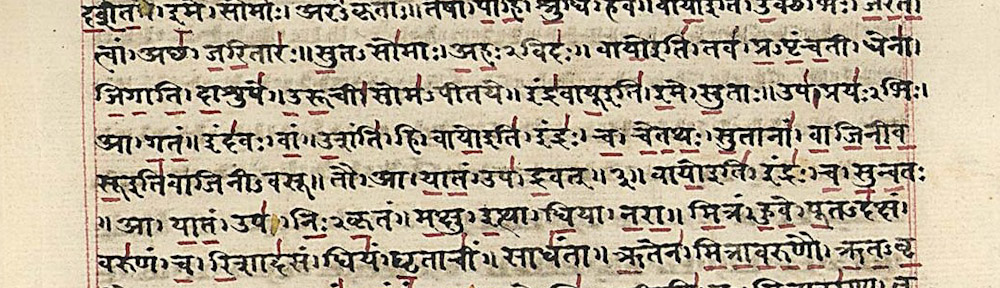 इमे। सोमाः। अरंऽकृताः॥ तेषां। पाहि। श्रुधि। हवं॥ वायो इति। उक्थेभिः। जरंते
त्वां। अच्छ। जरितारः॥ सुतऽसोमाः। अहःऽविदः॥ वायो इति। तव। प्रऽपृंचती। धेना।
जिगाति। दाशुषे॥ उरूची। सोमऽपीतये॥ इंद्रवायू इति। इमे। सुताः॥ उप। प्रयःऽभिः।
आ। गतं॥ इंदवः। वां। उशंति। हि। वायो इति। इंद्रः। च। चेतथः। सुतानां। वाजिनीव
सू इति वाजिनीऽवसू॥ तौ। आ। यातं। उप। द्रवत्॥ ३॥ वायो इति। इंद्रः। च। सुन्वतः
॥ आ। यातं। उप। निःऽकृतं॥ मक्षु। इत्था। धिया। नरा॥ मित्रं। हुवे। पूतऽदक्षं।
वरुणं। च। रिशादसं। धियं। घृताचीं। साधंता॥ ऋतेन। मित्रावरुणौ। ऋतऽवृ